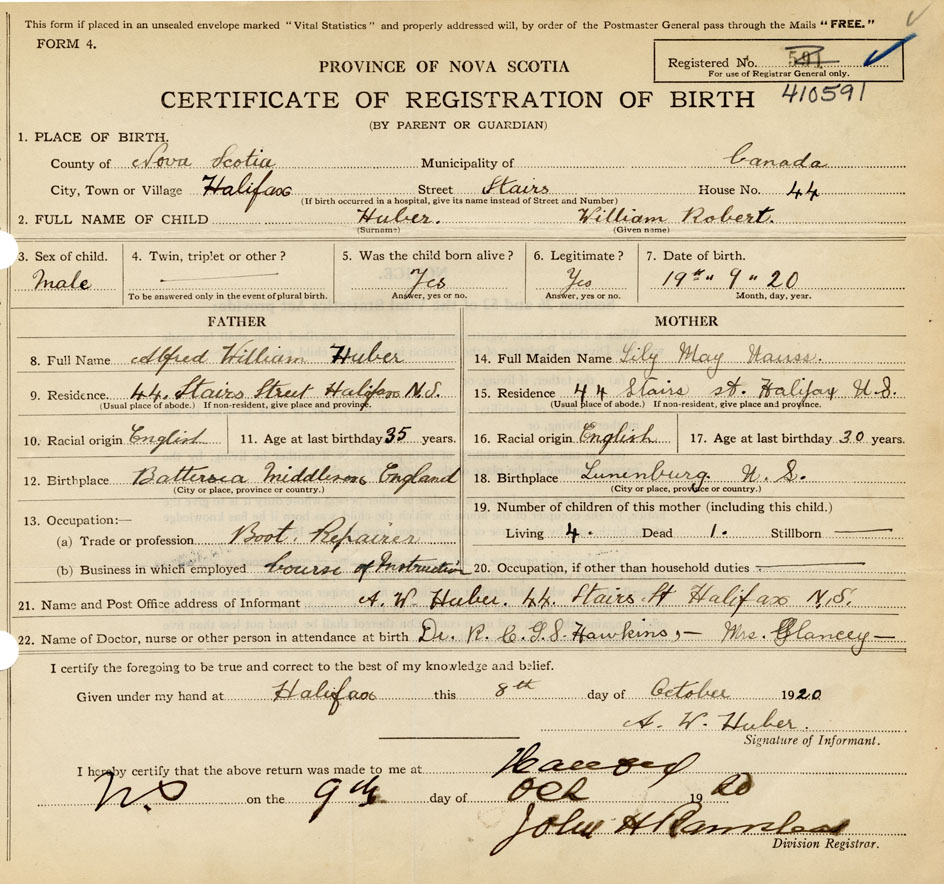 This form if placed in an unsealed envelope marked "Vital Statistics" and properly addressed will, by order of the Postmaster General pass through the Mails "FREE."
FORM 4.
Registered No. 591
For use of Registrar General only.
410591
PROVINCE OF NOVA SCOTIA
CERTIFICATE OF REGISTRATION OF BIRTH
(BY PARENT OR GUARDIAN)
1. PLACE OF BIRTH.
County of Nova Scotia Municipality of Canada
City, Town or Village Halifax Street Stairs House No. 44
(If birth occurred in a hospital, give its name instead of Street and Number)
2. FULL NAME OF CHILD Huber. William Robert.
(Surname) (Given name)
3. Sex of child. 4. Twin, triplet or other? 5. Was the child born alive? 6. Legitimate? 7. Date of birth.
Male Yes Yes 19th " 9 " 20
To be answered only in the event of plural birth. Answer, yes or no. Answer, yes or no. Month, day, year.
FATHER
8. Full Name Alfred William Huber
9. Residence. 44. Stairs Street Halifax N.S.
(Usual place of abode.) If non-resident, give place and province.
10. Racial origin English 11. Age at last birthday 35 years.
12. Birthplace Battersea Middlesex England
(City or place, province or country.)
13. Occupation:—
(a) Trade or profession Boot. Repairer
(b) Business in which employed Course of Instruction
MOTHER
14. Full Maiden Name Lily May Nauss.
15. Residence 44 Stairs st. Halifax N.S.
(Usual place of abode.) If non-resident, give place and province.
16. Racial origin English 17. Age at last birthday 30 years.
18. Birthplace Lunenburg N. S.
(City or place, province or country.)
19. Number of children of this mother (including this child.)
Living 4. Dead 1. Stillborn
20. Occupation, if other than household duties
21. Name and Post Office address of Informant A. W. Huber. 44. Stairs. St Halifax N.S.
22. Name of Doctor, nurse or other person in attendance at birth Dr. R. C. G. S. Hawkins, - Mrs. Glancey -
I certify the foregoing to be true and correct to the best of my knowledge and belief.
Given under my hand at Halifax this 8th day of October 1920
A. W. Huber.
Signature of Informant.
I hereby certify that the above return was made to me at
N.S on the 9th day of Oct 1920
John H
Division Registrar.